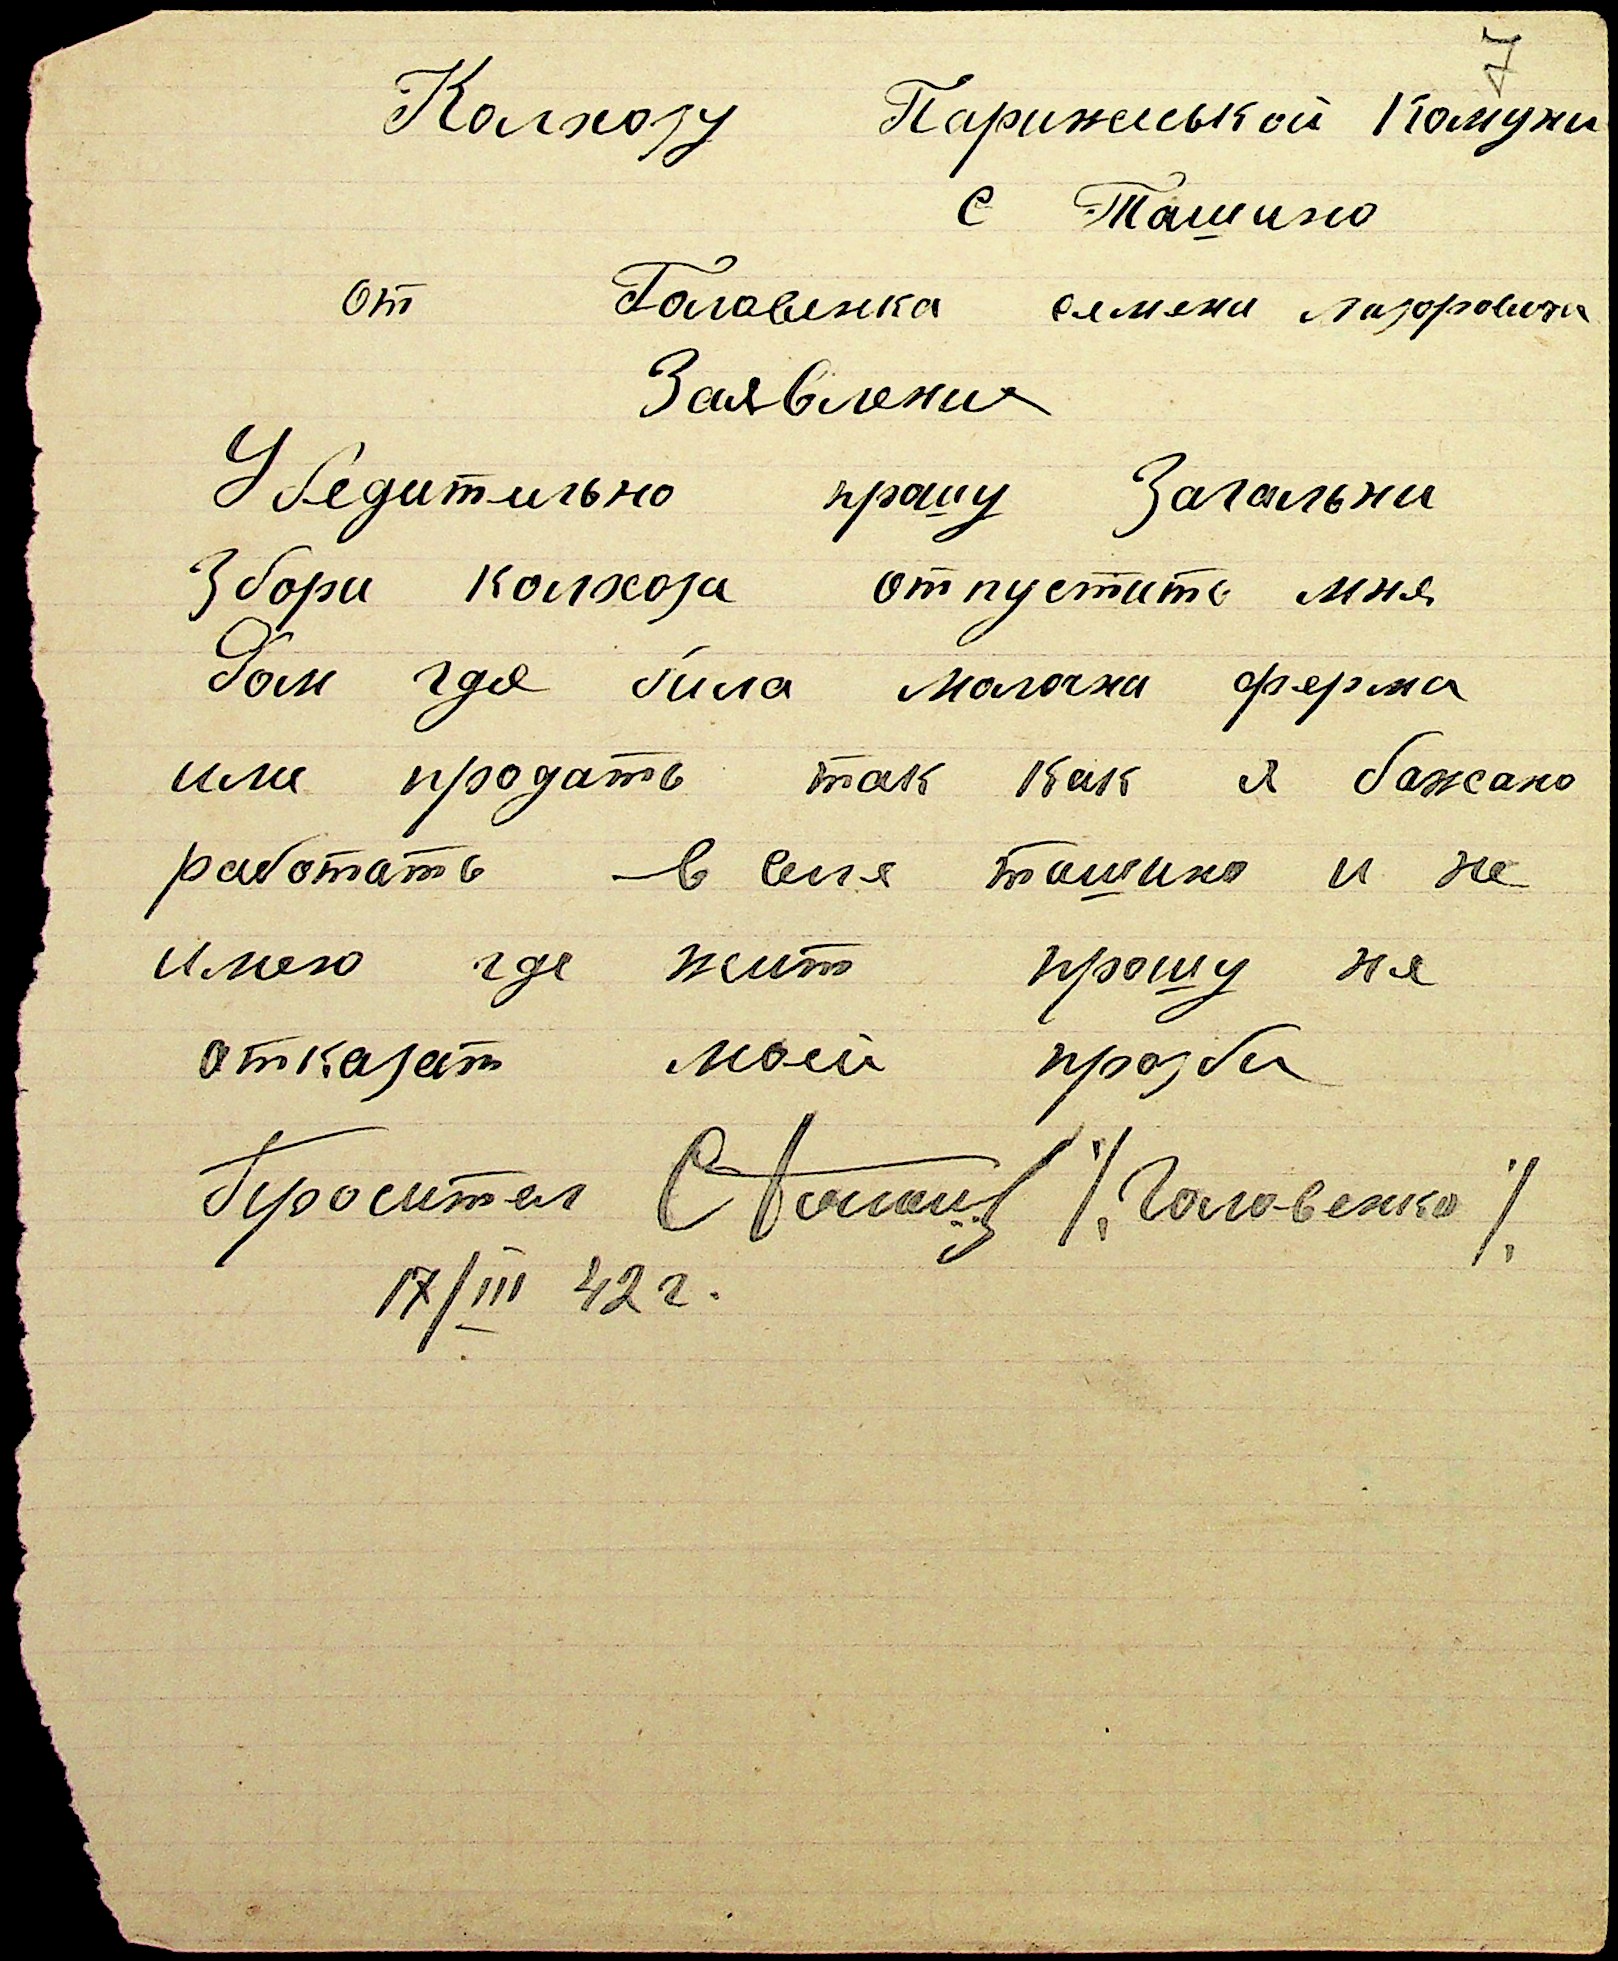 7
Колхозу Парижської Комуни
с Ташино
от Головенка семена лазоровича
Заявление
Убедительно прошу Загальни
Збори колхоза отпустить мня
Дом где била молочна ферма
или продать так как я бажаю
работать в селе ташино и не
имею где жит прошу не
отказат моей прозби
Проситель /. Головенко ./
17/III 42 г.